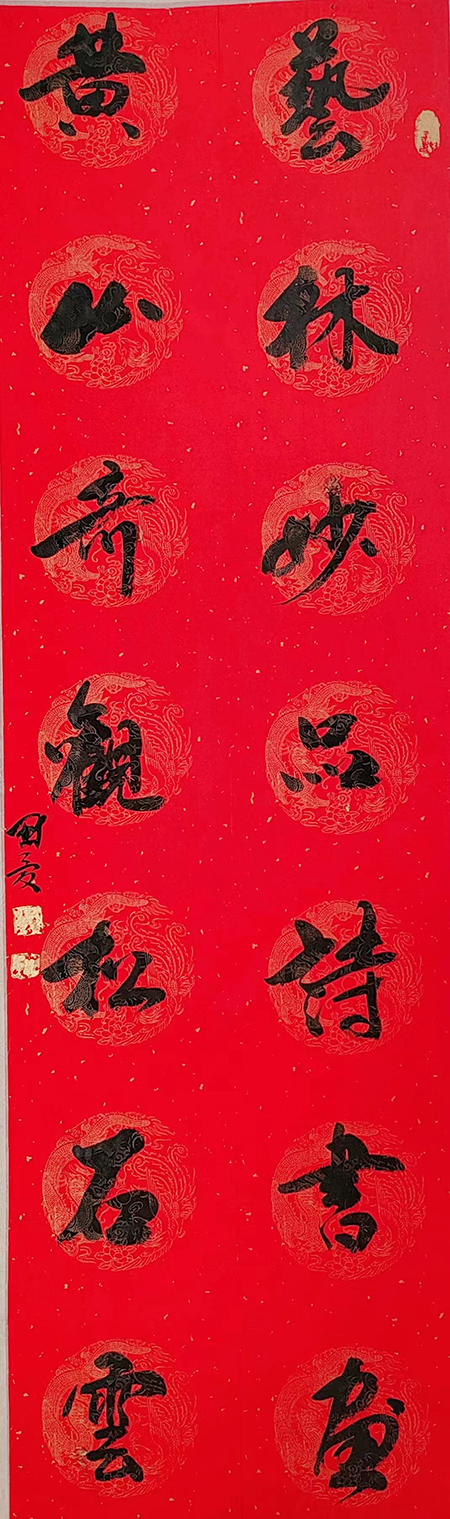 藝林妙品詩書畫
黄山奇觀松石雲